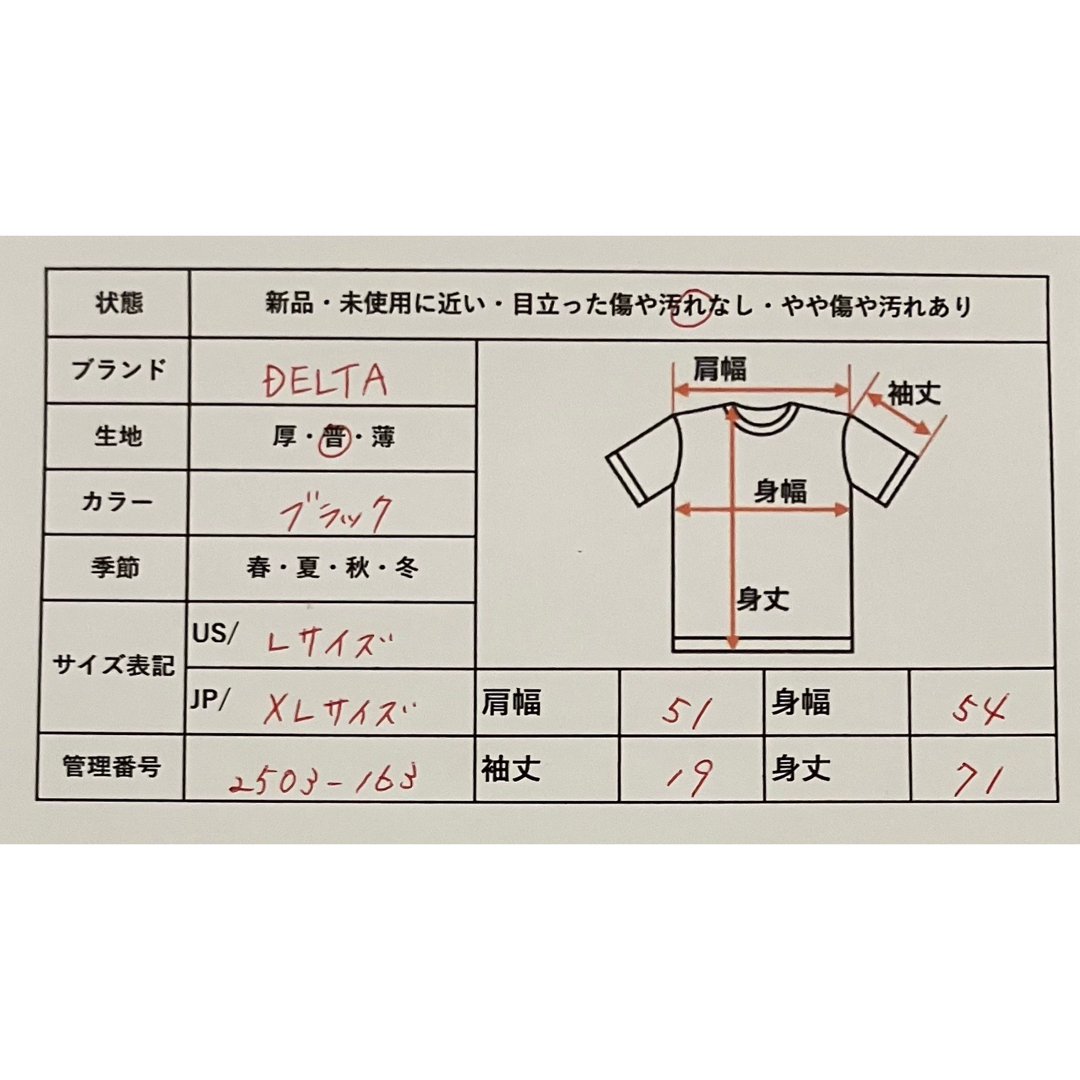 状態 新品・未使用に近い・目立った傷や汚れなし・やや傷や汚れあり
ブランド DELTA
生地 厚・普・薄
カラー ブラック
季節 春・夏・秋・冬
サイズ表記 US/ Lサイズ
JP/ XLサイズ
管理番号 2503-163
肩幅
袖丈
身幅
身丈
肩幅 51 身幅 54
袖丈 19 身丈 71